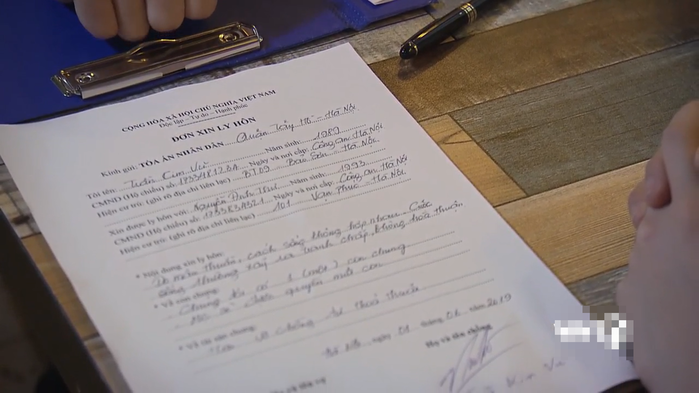 CỘNG HÒA XÃ HỘI CHỦ NGHĨA VIỆT NAM
Độc lập - Tự do - Hạnh phúc
ĐƠN XIN LY HÔN
Kính gửi: TÒA ÁN NHÂN DÂN Quận Tây Hồ - Hà Nội
Tôi tên: Năm sinh: 1989
CMND (Hộ chiếu) số: Ngày và nơi cấp: Công an Hà Nội
Hiện cư trú: (ghi rõ địa chỉ liên lạc) BT09 - Hà Nội
Xin được ly hôn với: Nguyễn Anh Thư Năm sinh: 1993
CMND (Hộ chiếu) số: Ngày và nơi cấp: Công an Hà Nội
Hiện cư trú: (ghi rõ địa chỉ liên lạc) 101 Vạn Phúc - Hà Nội
* Nội dung xin ly hôn:
mâu thuẫn, cách sống không hợp nhau. Cuộc
sống thường xảy ra tranh chấp, không hòa thuận
* Về con chung:
Chúng tôi có 1 (một) con chung
quyền nuôi con
* Về tài sản chung:
Vợ chồng tự thoả thuận
Hà Nội, ngày 01 tháng 01 năm 2019
Họ và tên chồng
Họ và tên vợ